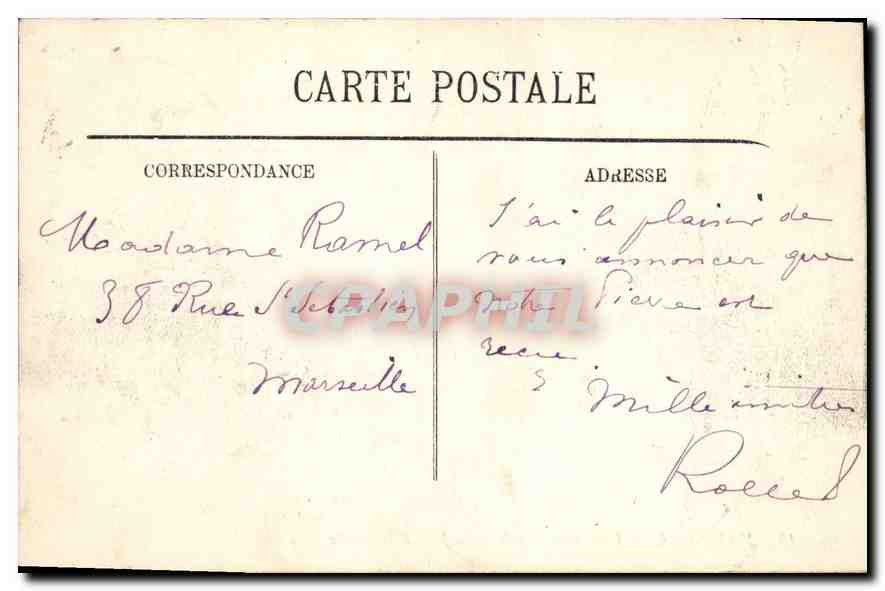 CARTE POSTALE
CORRESPONDANCE
ADRESSE
Madame Ramel
38 Rue St Sébastien
Marseille
J'ai le plaisir de
vous annoncer que
votre Pierre est
recu
Mille
CPAPHIL